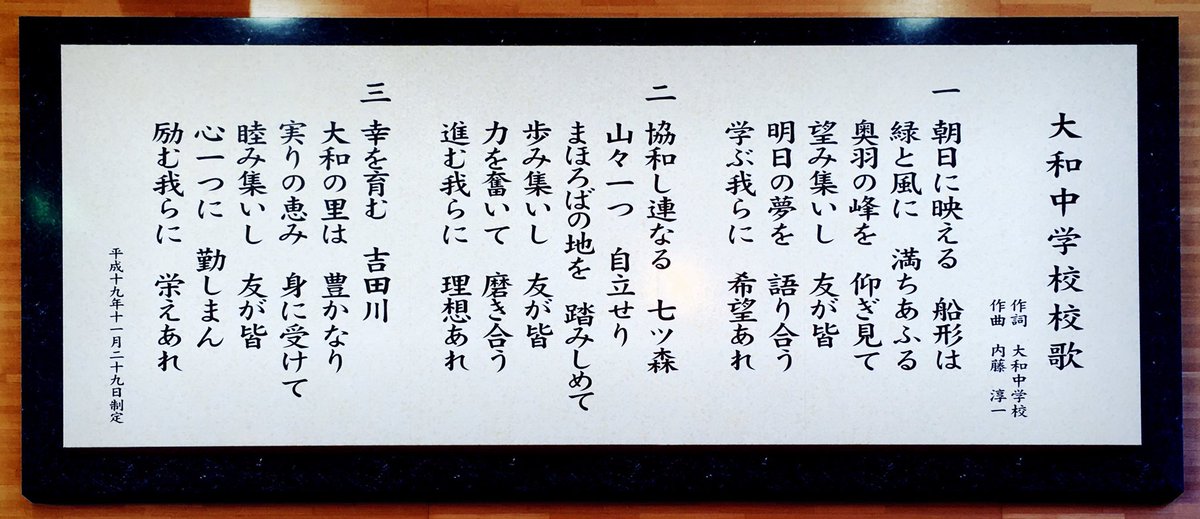 大和中学校校歌
作詞　大和中学校
作曲　内藤　淳一
一　朝日に映える　船形は
緑と風に　満ちあふる
奥羽の峰を　仰ぎ見て
望み集いし　友が皆
明日の夢を　語り合う
学ぶ我らに　希望あれ
二　協和し連なる　七ツ森
山々一つ　自立せり
まほろばの地を　踏みしめて
歩み集いし　友が皆
力を奮いて　磨き合う
進む我らに　理想あれ
三　幸を育む　吉田川
大和の里は　豊かなり
実りの恵み　身に受けて
睦み集いし　友が皆
心一つに　勤しまん
励む我らに　栄えあれ
平成十九年十一月二十九日制定